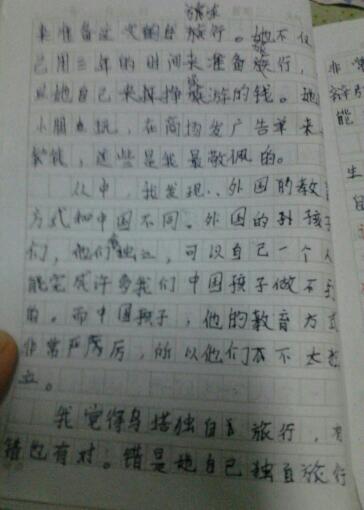 来准备这次的自旅行。她不仅
己用三年的时间来准备旅行,
且她自己来挣旅游的钱。她
小朋友玩,在商场发广告单来
钱,这些是我最敬佩的。
从中,我发现..外国的教
方式和中国不同。外国的孩子
们,他们独立,可以自己一个人
能完成许多我们中国孩子做不到
的。而中国孩子,他的教育方式
非常严厉,所以他们不太独
立。
我觉得乌塔独自旅行,有
错也有对。错是她自己独自旅行
非常
能
生